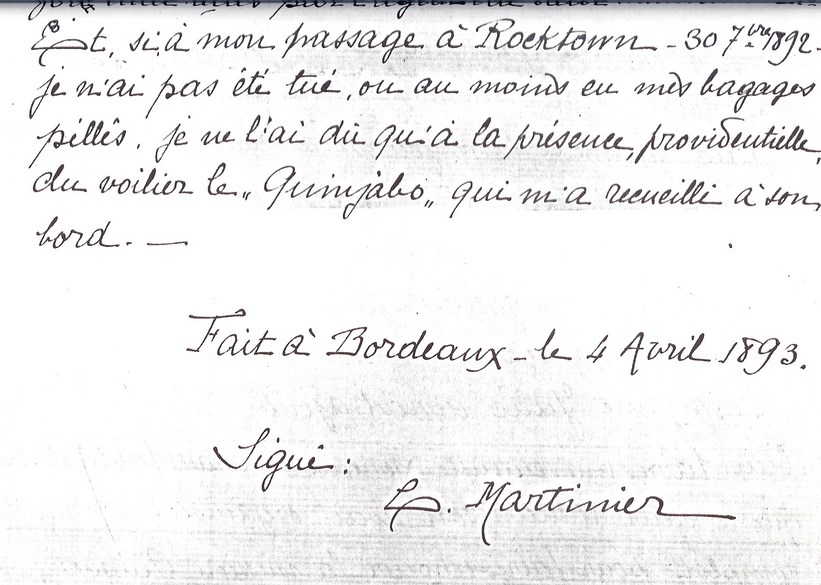 Et, si à mon passage à Rocktown - 30 7bre 1892 -
je n'ai pas été tué, ou au moins eu mes bagages
pillés, je ne l'ai dû qu'à la présence, providentielle,
du voilier le „ Quinjabo „ qui m'a recueilli à son
bord. —
Fait à Bordeaux - le 4 Avril 1893.
Signé :
L. Martinier